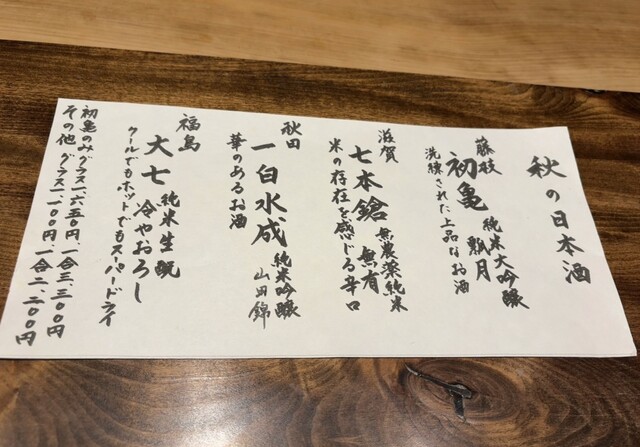 秋の日本酒
藤枝
初亀 純米大吟醸 瓢月
洗練された上品なお酒
滋賀
七本鎗 無農薬純米 無有
米の存在を感じる辛口
秋田
一白水成 純米吟醸 山田錦
華のあるお酒
福島
大七 純米生酛 冷やおろし
クールでもホットでもスーパードライ
初亀のみグラス一、六五〇円、一合三、三〇〇円
その他 グラス一、一〇〇円、一合二、二〇〇円